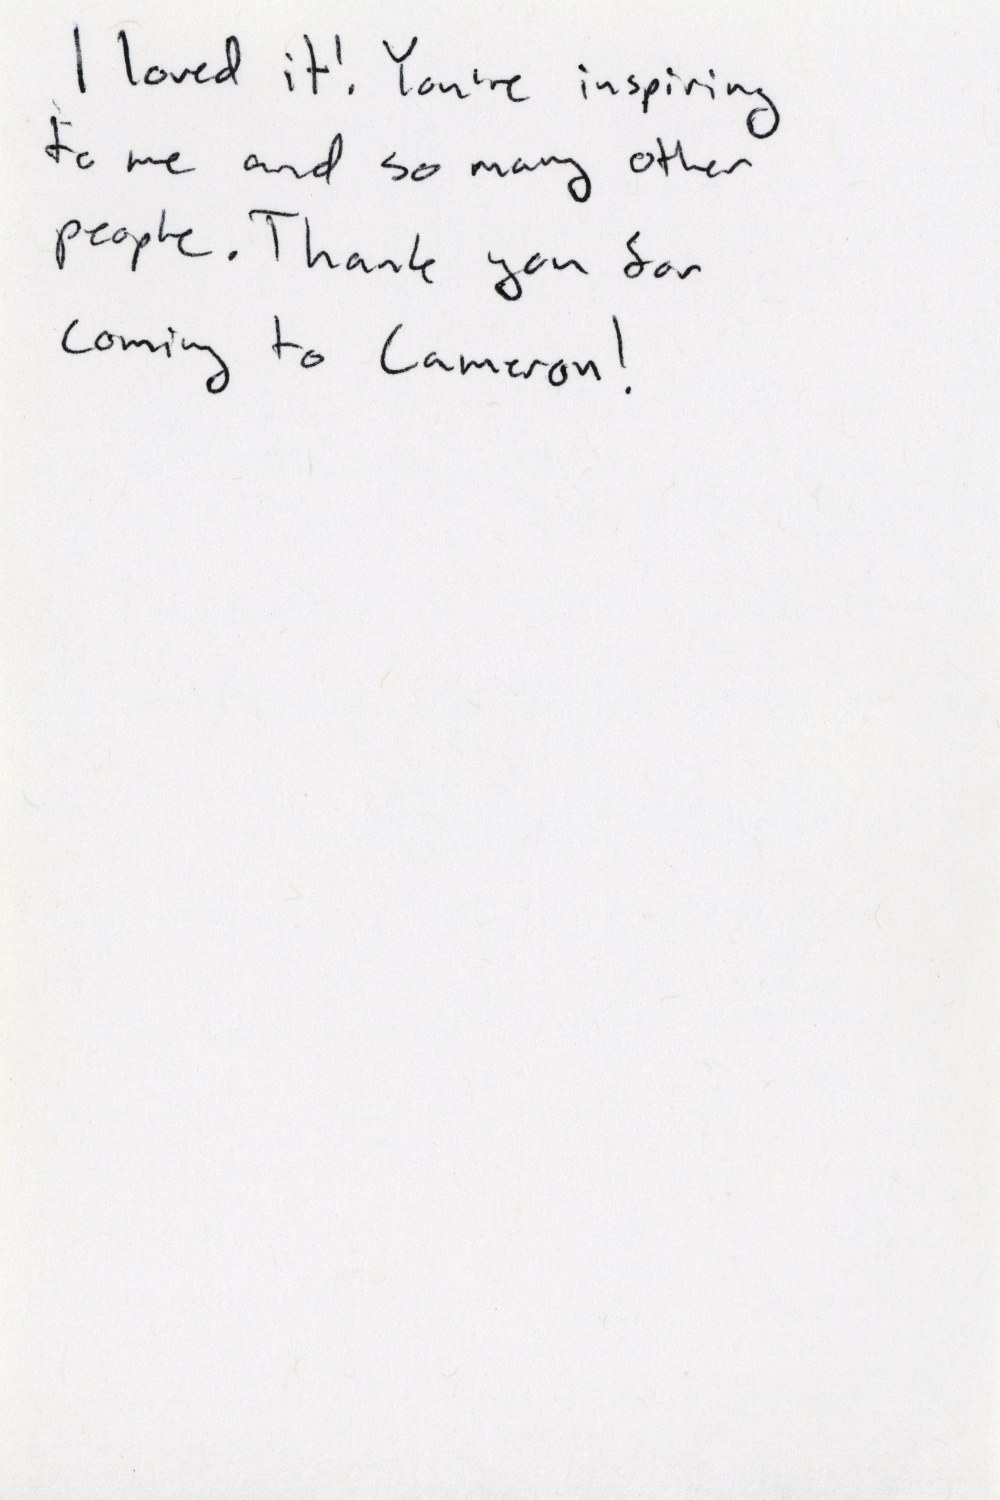 I loved it! You're inspiring
to me and so many other
people. Thank you for
coming to Cameron!